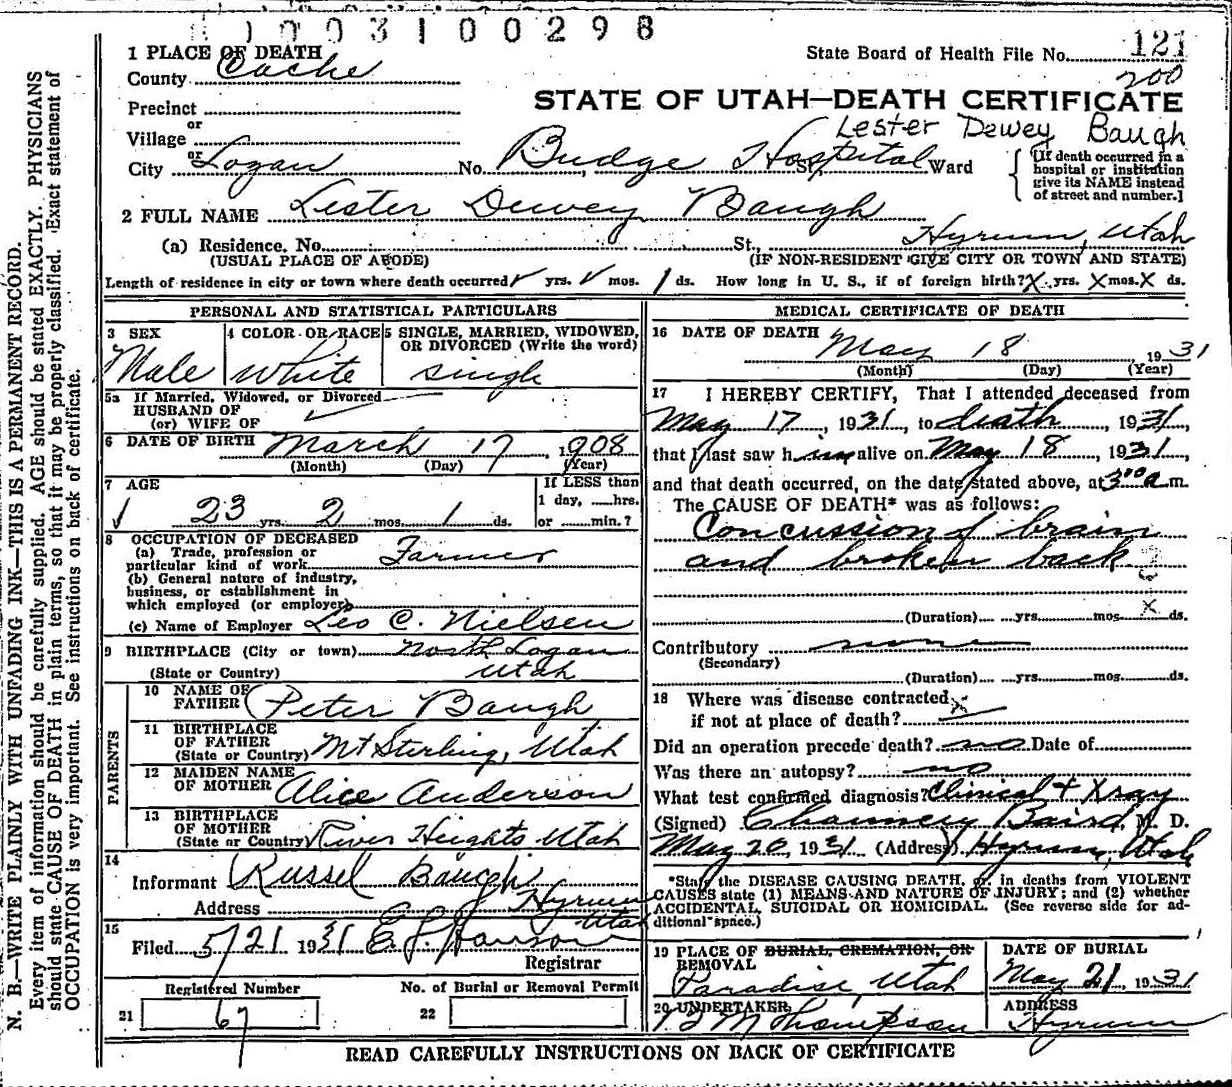 0 0 3 1 0 0 2 9 8
1 PLACE OF DEATH
State Board of Health File No. 121
County Cache
200
Precinct
STATE OF UTAH—DEATH CERTIFICATE
or
Village
Lester Dewey Baugh
or
City Logan No. Budge Hospital St., Ward
[If death occurred in a
hospital or institution
give its NAME instead
of street and number.]
2 FULL NAME Lester Dewey Baugh
(a) Residence. No. St., Hyrum, Utah
(USUAL PLACE OF ABODE) (IF NON-RESIDENT GIVE CITY OR TOWN AND STATE)
Length of residence in city or town where death occurred yrs. mos. 1 ds. How long in U. S., if of foreign birth? X yrs. X mos. X ds.
PERSONAL AND STATISTICAL PARTICULARS
3 SEX
Male
4 COLOR OR RACE
White
5 SINGLE, MARRIED, WIDOWED,
OR DIVORCED (Write the word)
Single
5a If Married, Widowed, or Divorced
HUSBAND OF
(or) WIFE OF
6 DATE OF BIRTH March 17, 1908
(Month) (Day) (Year)
7 AGE
If LESS than
1 day, hrs.
23 yrs. 2 mos. 1 ds. or min.?
8 OCCUPATION OF DECEASED
(a) Trade, profession or
particular kind of work Farmer
(b) General nature of industry,
business, or establishment in
which employed (or employer)
(c) Name of Employer Leo C. Nielsen
9 BIRTHPLACE (City or town) North Logan
(State or Country) Utah
PARENTS
10 NAME OF
FATHER Peter Baugh
11 BIRTHPLACE
OF FATHER
(State or Country) Mt Sterling, Utah
12 MAIDEN NAME
OF MOTHER Alice Anderson
13 BIRTHPLACE
OF MOTHER
(State or Country) River Heights Utah
14
Informant Russel Baugh
Address Hyrum
Utah
15
Filed 5/21 1931 E. L. Hanson
Registrar
Registered Number No. of Burial or Removal Permit
21 67 22
MEDICAL CERTIFICATE OF DEATH
16 DATE OF DEATH May 18 1931
(Month) (Day) (Year)
17 I HEREBY CERTIFY, That I attended deceased from
May 17, 1931, to death, 1931,
that I last saw him alive on May 18, 1931,
and that death occurred, on the date stated above, at 3:00 a m.
The CAUSE OF DEATH* was as follows:
Concussion of brain
and broken back
(Duration) yrs. mos. X ds.
Contributory none
(Secondary)
(Duration) yrs. mos. ds.
18 Where was disease contracted
if not at place of death? X
Did an operation precede death? no Date of
Was there an autopsy? no
What test confirmed diagnosis? Clinical + Xray
(Signed) Chauncey Baird, M. D.
May 20, 1931 (Address) Hyrum, Utah
*State the DISEASE CAUSING DEATH, or, in deaths from VIOLENT
CAUSES state (1) MEANS AND NATURE OF INJURY; and (2) whether
ACCIDENTAL, SUICIDAL OR HOMICIDAL. (See reverse side for ad-
ditional space.)
19 PLACE OF BURIAL, CREMATION, OR
REMOVAL
Paradise, Utah
DATE OF BURIAL
May 21, 1931
20 UNDERTAKER
B M Thompson
ADDRESS
Hyrum
READ CAREFULLY INSTRUCTIONS ON BACK OF CERTIFICATE
N. B.—WRITE PLAINLY WITH UNFADING INK—THIS IS A PERMANENT RECORD.
Every item of information should be carefully supplied. AGE should be stated EXACTLY. PHYSICIANS
should state CAUSE OF DEATH in plain terms, so that it may be properly classified. Exact statement of
OCCUPATION is very important. See instructions on back of certificate.